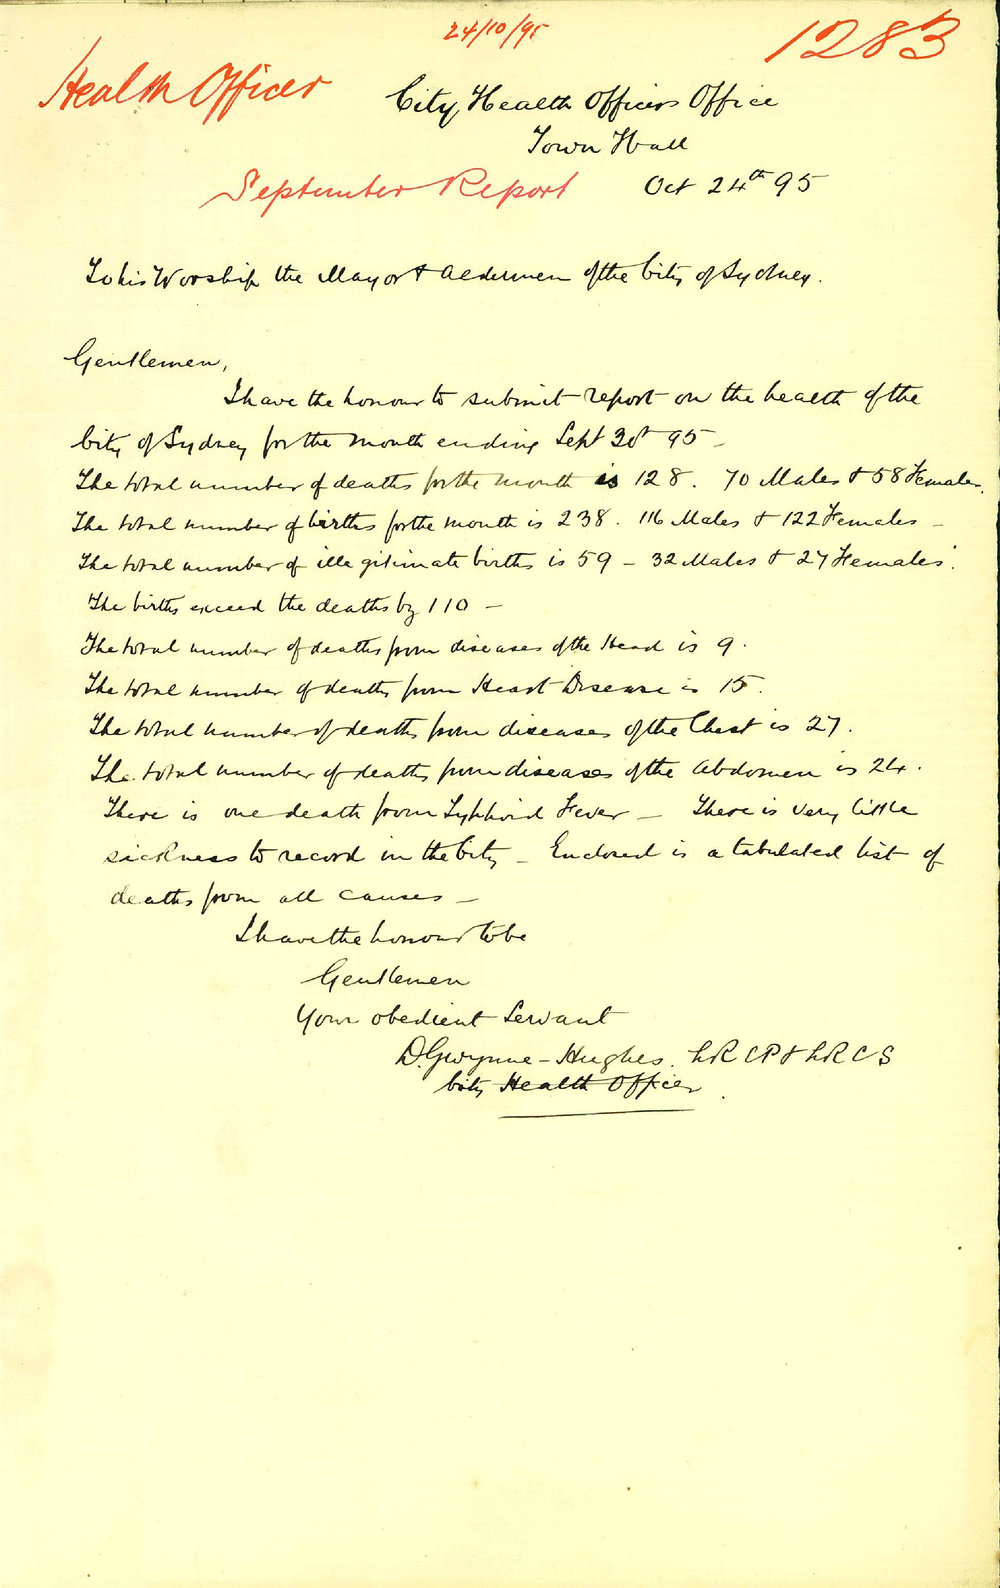 24/10/95
1283
Health Officer
City Health Officers Office
Town Hall
September Report
Oct 24th 95
To his Worship the Mayor & Aldermen of the City of Sydney.
Gentlemen,
I have the honour to submit report on the health of the
City of Sydney for the month ending Sept 30th 95 -
The total number of deaths for the month is 128. 70 Males & 58 Females.
The total number of births for the month is 238. 116 Males & 122 Females -
The total number of illegitimate births is 59 - 32 Males & 27 Females.
The births exceed the deaths by 110 -
The total number of deaths from diseases of the Head is 9.
The total number of deaths from Heart Disease is 15.
The total number of deaths from diseases of the Chest is 27.
The total number of deaths from diseases of the Abdomen is 24.
There is one death from Typhoid Fever - There is very little
sickness to record in the City - Enclosed is a tabulated list of
deaths from all causes -
I have the honour to be
Gentlemen
Your obedient Servant
D. Gwynne-Hughes. LRCP & LRCS
City Health Officer